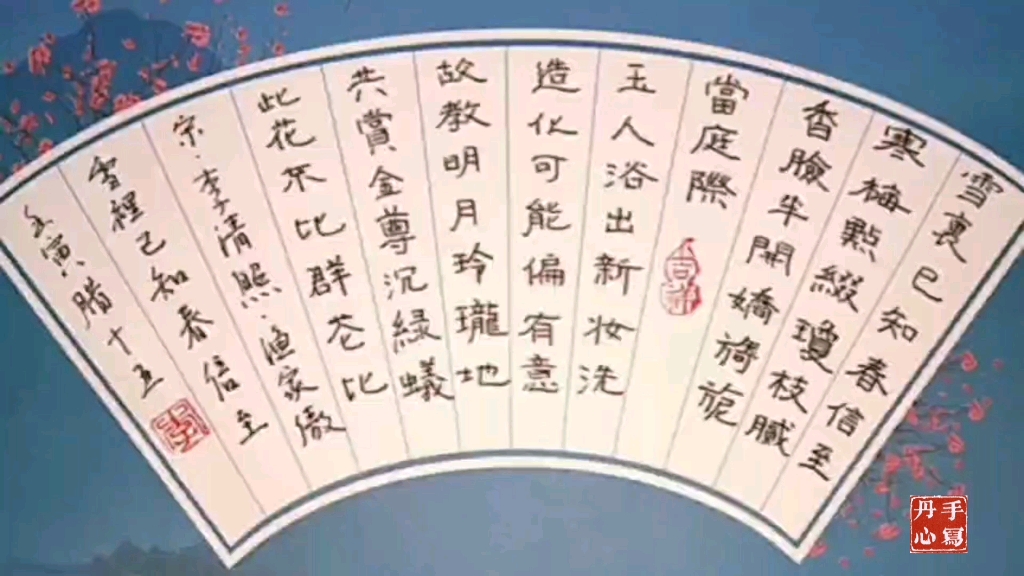 雪裏已知春信至
寒梅點綴瓊枝膩
香臉半開嬌旖旎
當庭際
吉祥
玉人浴出新妆洗
造化可能偏有意
故教明月玲瓏地
共賞金尊沉綠蟻
此花不比群花比
宋·李清照·渔家傲
雪裡已知春信至
壬寅腊十五
手寫
丹心